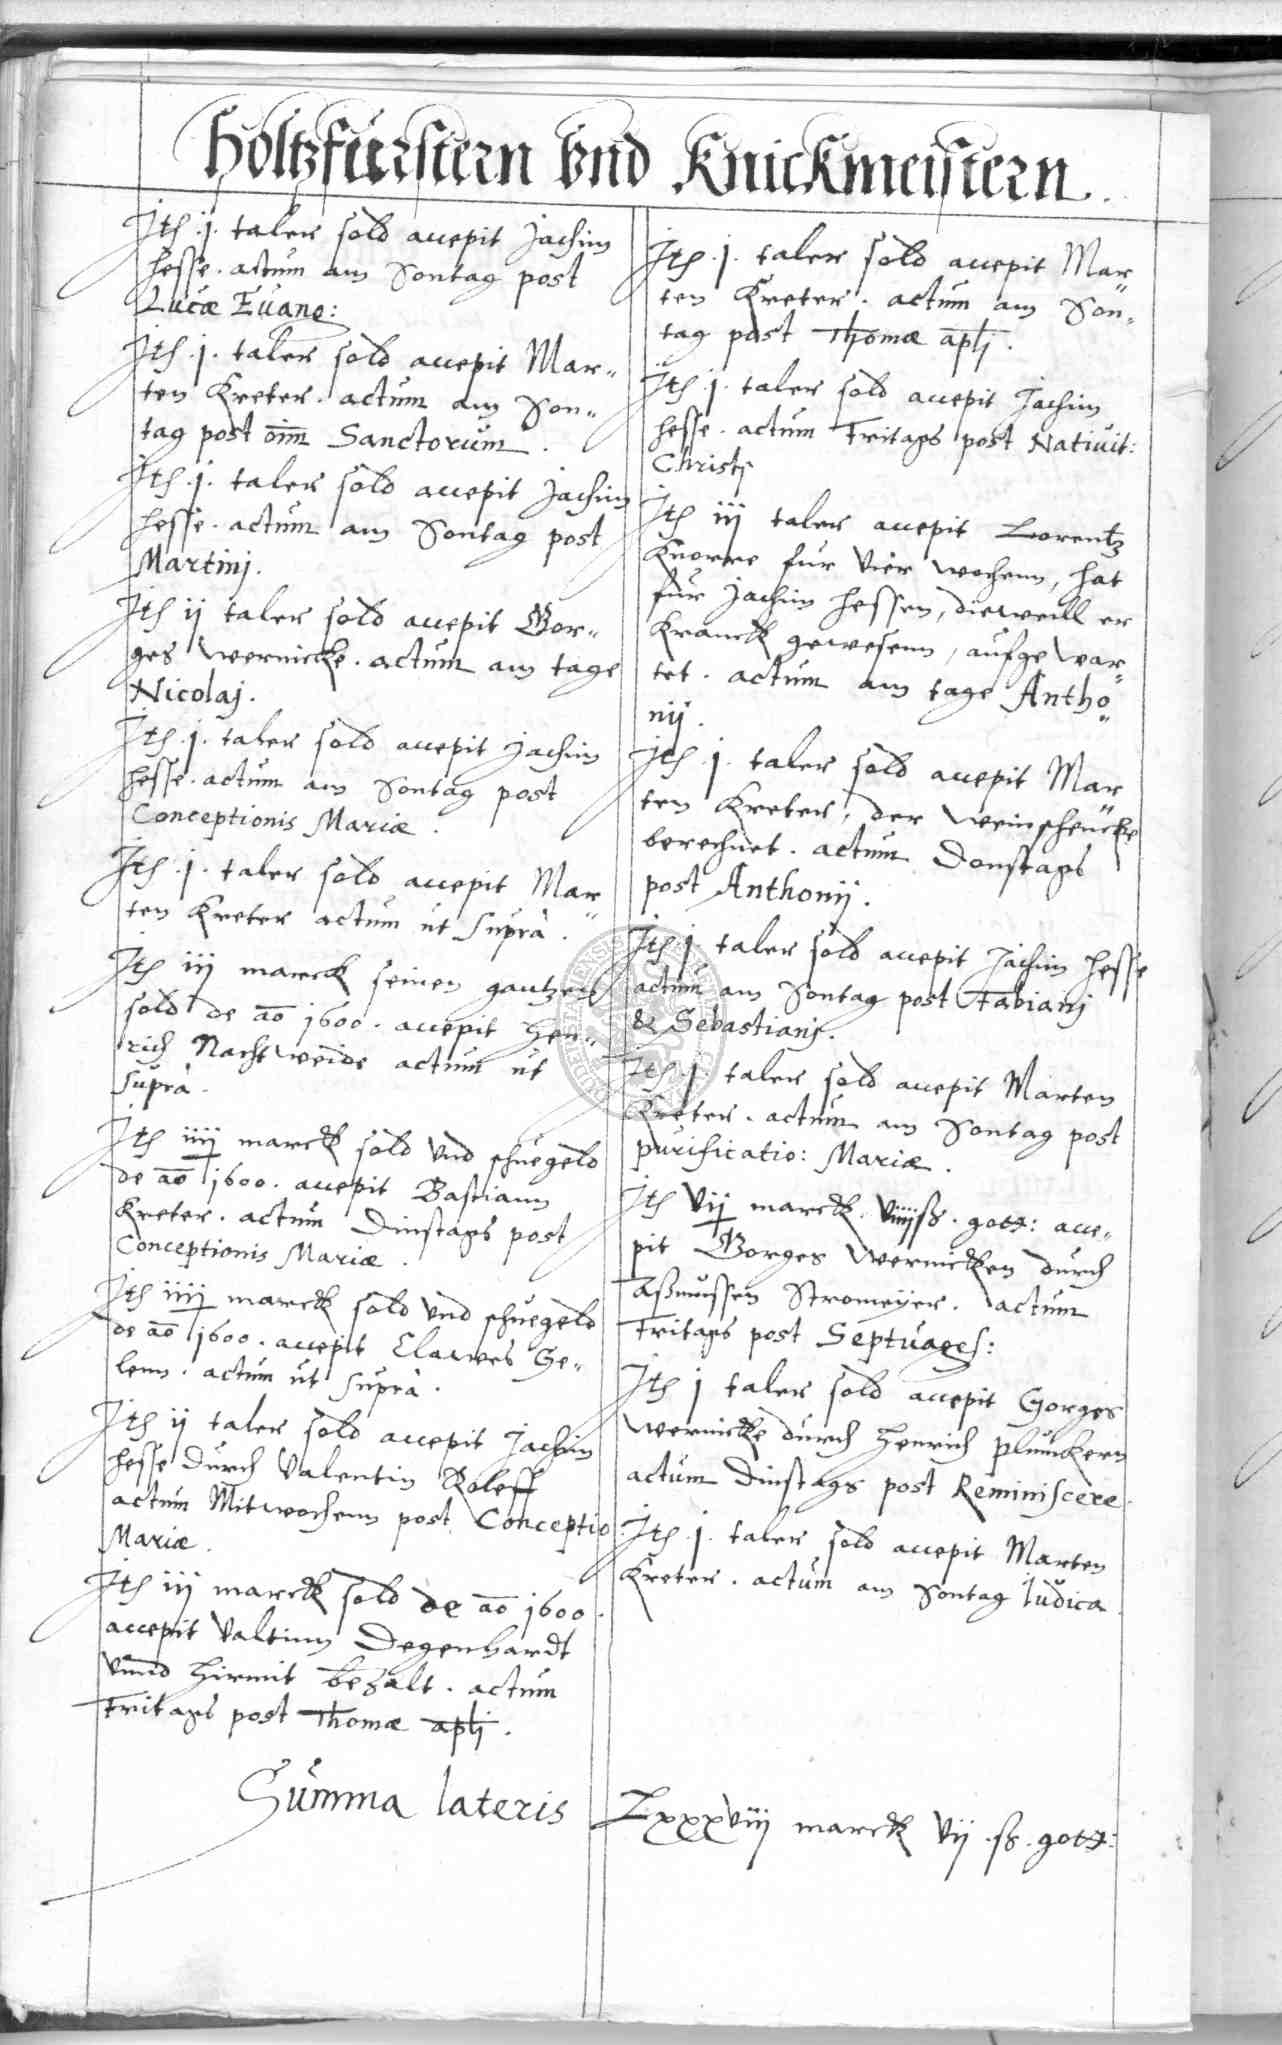 Holtzfurstern Vnd Knickmeistern.
Itħ .j. taler sold accepit Jachim
Hesse . actum am Sontag post
Lucæ Euang:
Itħ .j. taler sold accepit Mar„
ten Kreter . actum am Son„
tag post oīm Sanctorum .
Itħ .j. taler sold accepit Jachim
Hesse . actum am Sontag post
Martinj.
Itħ ij taler sold accepit Gor„
ges Wernicke . actum am tage
Nicolaj.
Itħ .j. taler sold accepit Jachim
Hesse . actum am Sontag post
Conceptionis Mariæ .
Itħ .j. taler sold accepit Mar„
ten Kreter actum ut suprà .
Itħ iij marck seinen gantzen
sold de aō 1600 . accepit Hen„
rich Nachtweide actum ut
suprà .
Itħ iiij marck sold Vnd schuegeld
de aō 1600 . accepit Bastiann
Kreter . actum Dinstags post
Conceptionis Mariæ .
Itħ iiij marck sold Vnd schuegeld
de aō 1600 . accepit Clawes Ge„
lenn . actum ut suprà .
Itħ ij taler sold accepit Jachim
Hesse durch Valentin Roleff
actum Mitwochenn post Conceptio
Mariæ .
Itħ iij marck sold de aō 1600 .
accepit Valtinn Degenhardt
Vnnd hirmit bezalt . actum
Fritags post Thomæ apłi .
Itħ .j. taler sold accepit Mar„
ten Kreter . actum am Son„
tag post Thomæ apłi .
Itħ .j. taler sold accepit Jachim
Hesse . actum Fritags post Natiuit:
Christj
Itħ iij taler accepit Lorentz
Knorre fur Vier wochenn, hat
fur Jachim Hessen, dieweill er
Kranck gewesenn, aufgewar„
tet . actum am tage Antho„
nij .
Itħ .j. taler sold accepit Mar„
ten Kreter, der Weinschencke
berechnet . actum Donstags
post Anthonij .
Itħ j. taler sold accepit Jachim Hesse
actum am Sontag post Fabianj
& Sebastianj .
Itħ .j. taler sold accepit Marten
Kreter . actum am Sontag post
purificatio: Mariæ .
Itħ Vij marck . Viiijß . gott: acce„
pit Gorges Wernicken durch
Aßmussen Stromeyer . actum
Fritags post Septuages:
Itħ j taler sold accepit Gorges
Wernicke durch Henrich Plunckern
actum Dinstags post Reminiscere .
Itħ .j. taler sold accepit Marten
Kreter . actum am Sontag Iudica .
Summa lateris Lxxxviij marck Vij .ß. gott: